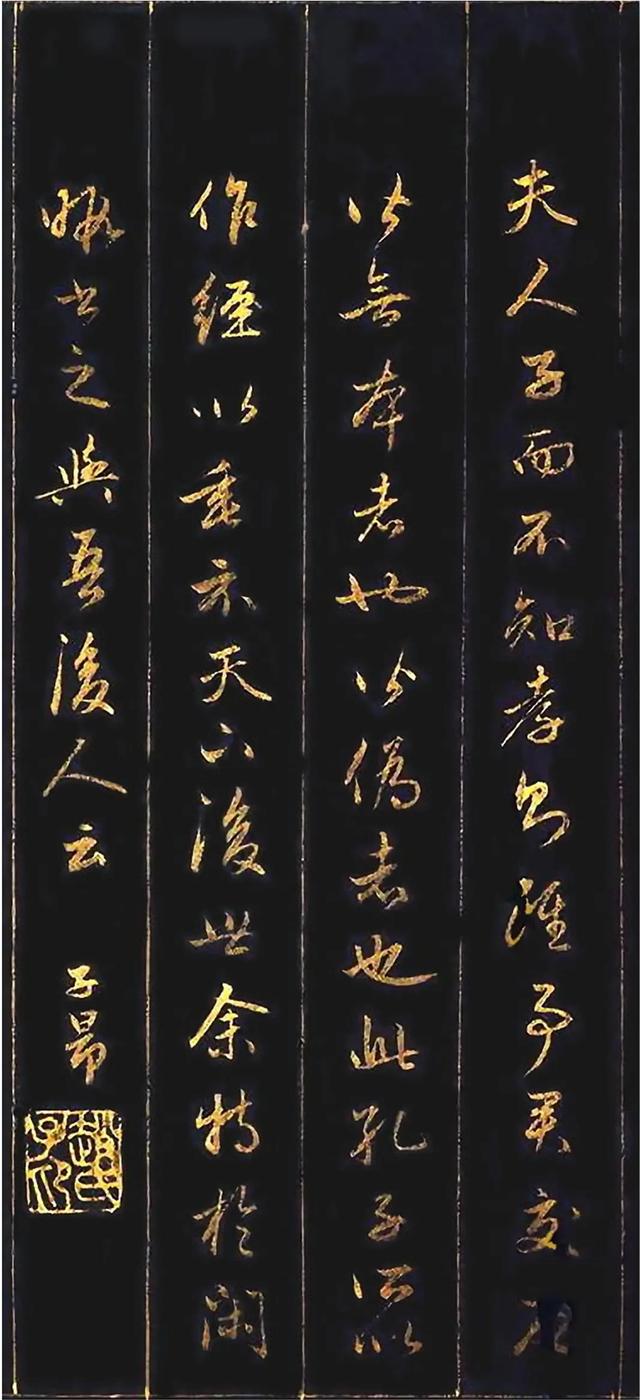 夫人子而不知孝則雖事君交
無本者也偽者也此孔子所以
作經以垂示天下後世余特於閑
暇書之與吾後人云 子昂
趙氏子昂